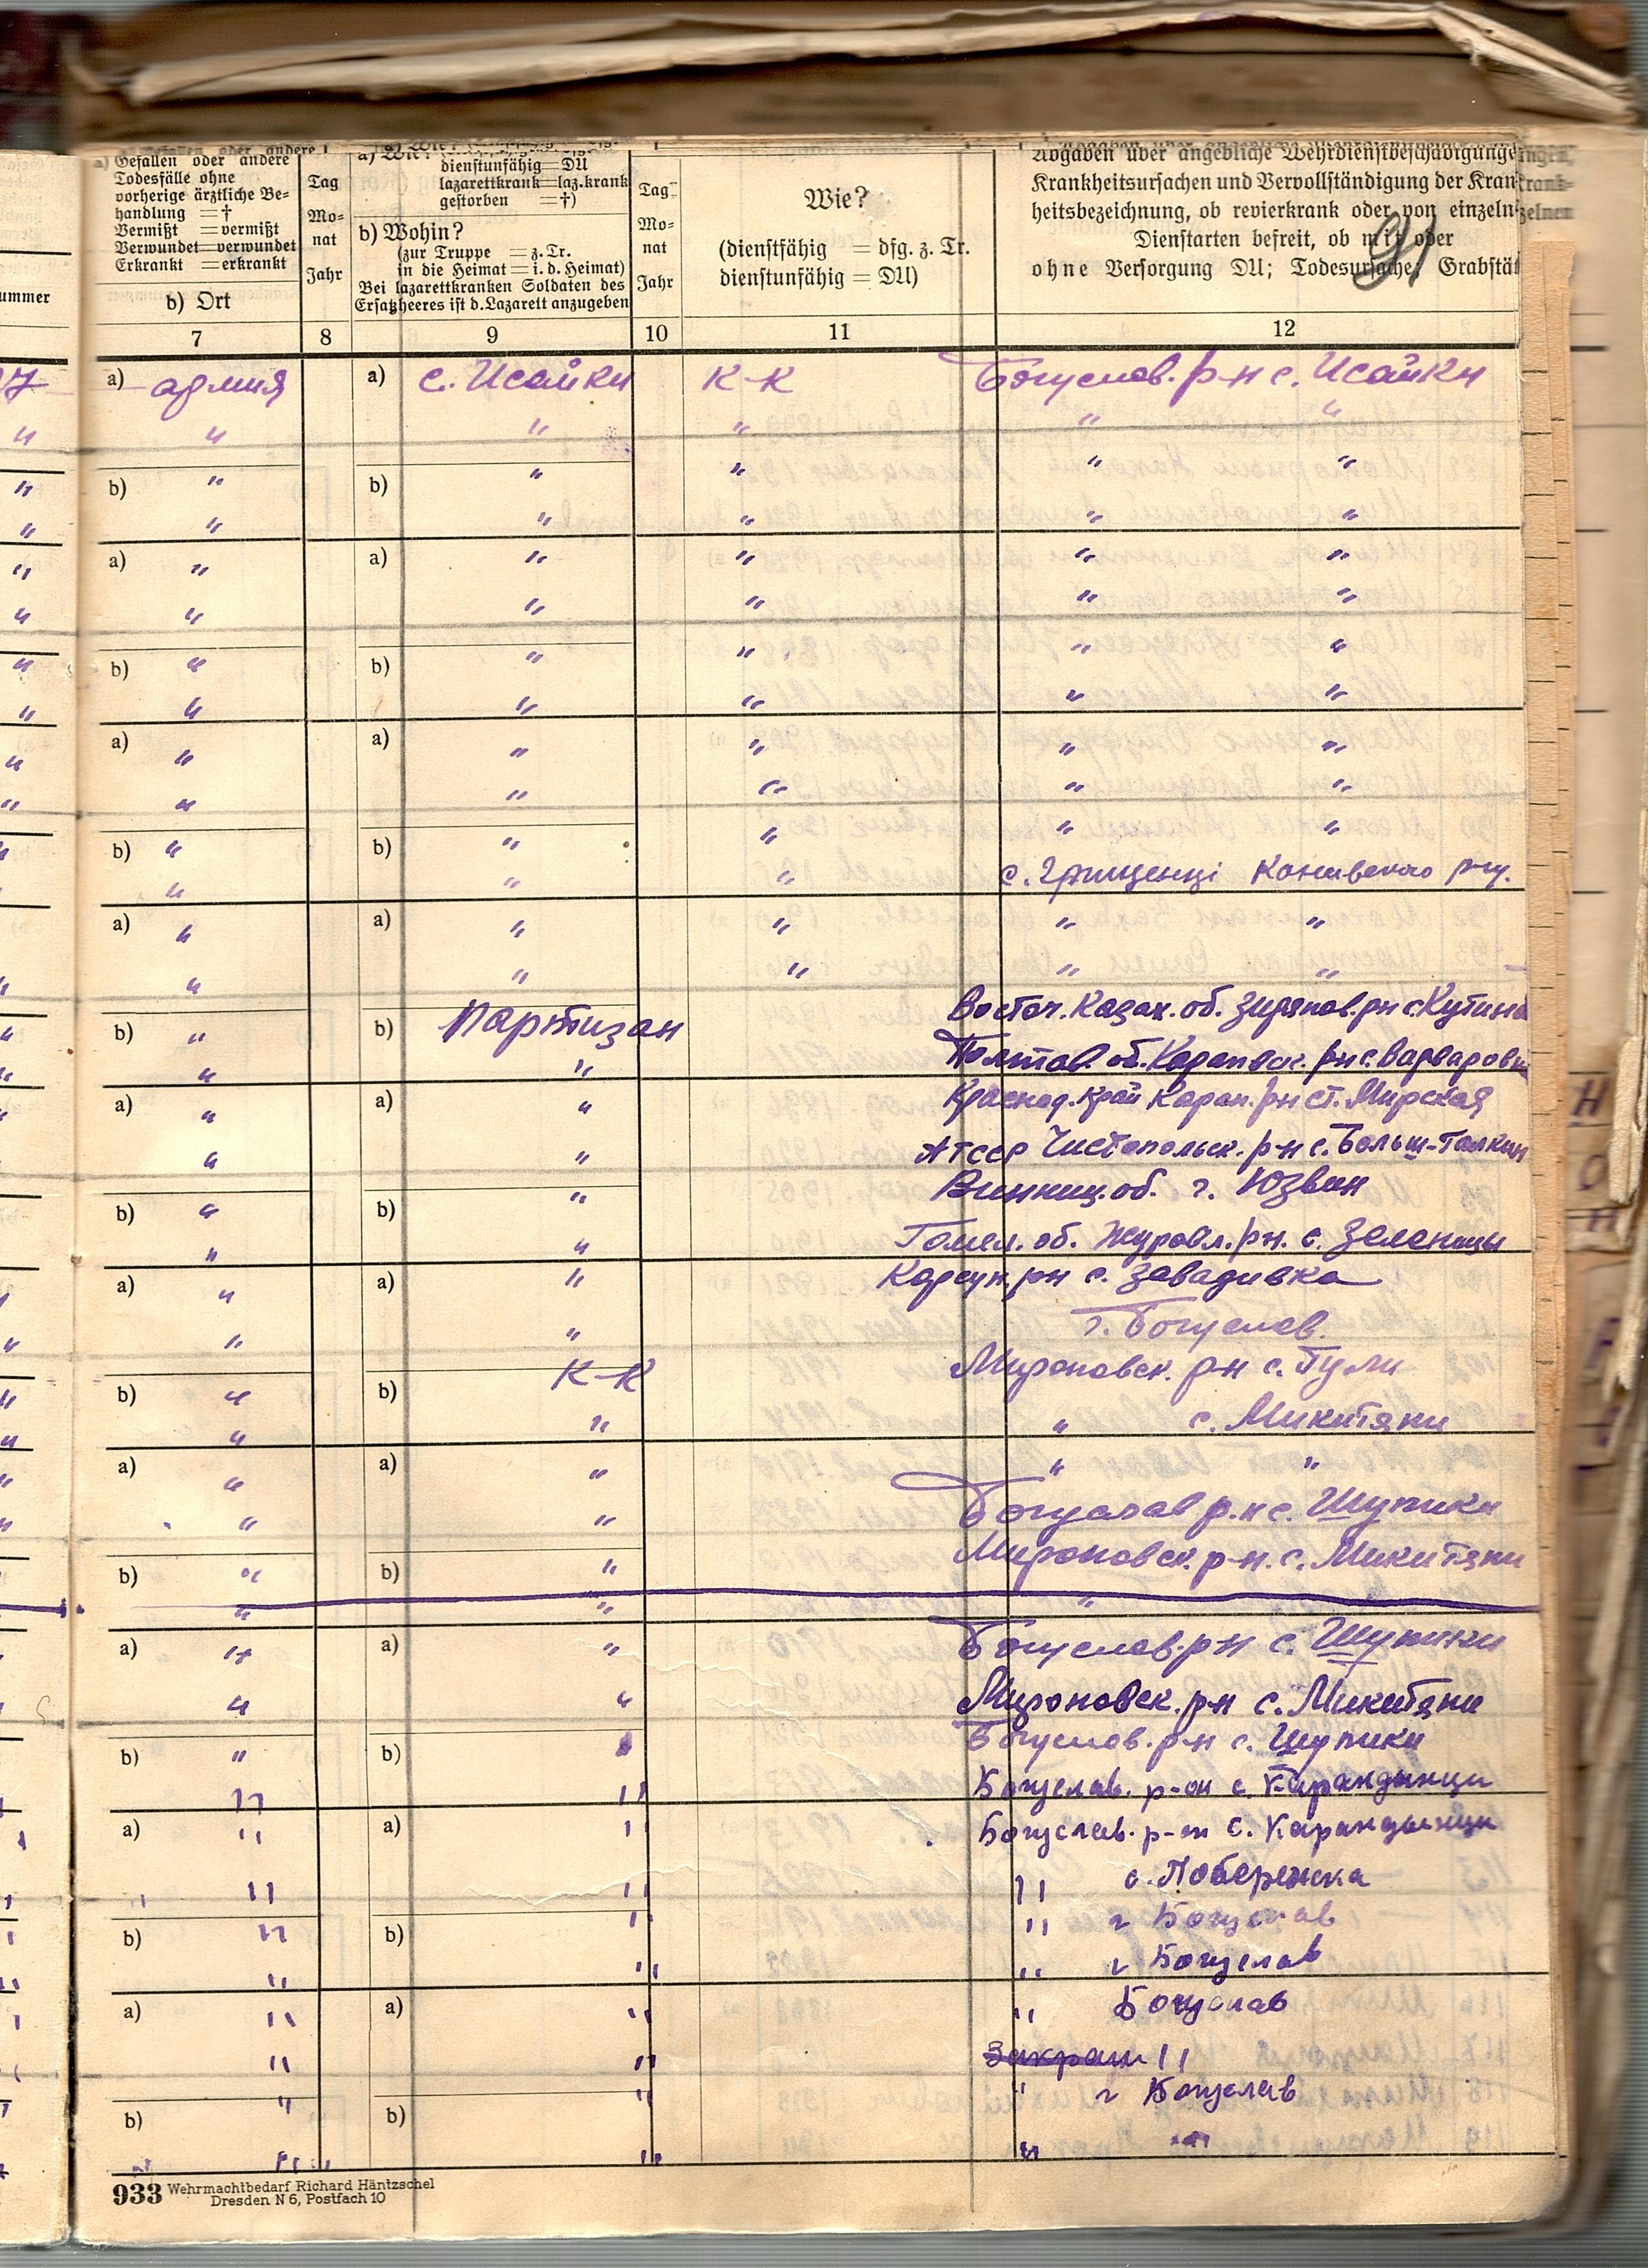 a) Gefallen oder andere
Todesfälle ohne
vorherige ärztliche Be-
handlung = †
Vermißt = vermißt
Verwundet = verwundet
Erkrankt = erkrankt
b) Ort
Tag
Mo-
nat
Jahr
a) Wie?
dienstunfähig = DU
lazarettkrank = laz.krank
gestorben = †)
b) Wohin?
(zur Truppe = z. Tr.
in die Heimat = i. d. Heimat)
Bei lazarettkranken Soldaten des
Ersatzheeres ist d. Lazarett anzugeben
Tag
Mo-
nat
Jahr
Wie?
(dienstfähig = dfg. z. Tr.
dienstunfähig = DU)
Angaben über angebliche Wehrdienstbeschädigung
Krankheitsursachen und Vervollständigung der Kran
heitsbezeichnung, ob revierkrank oder von einzeln
Dienstarten befreit, ob mit oder
ohne Versorgung DU; Todesursache; Grabstät
91
ummer
7 8 9 10 11 12
a) армия a) с. Исайки К-К Богуслав. р-н с. Исайки
" " " " "
b) " b) " " " "
" " " " "
a) " a) " " " "
" " " " "
b) " b) " " " "
" " " " "
a) " a) " " " "
" " " " "
b) " b) " " " "
" " " с. Грищенці Канивского р-ну.
a) " a) " " " "
" " " " "
b) " b) Партизан Восточ. Казах. об. Зирянов. рн с Кутиха
" " Полтав. об. рн с. Варваровк
a) " a) " Краснод. край рн ст. Мирская
" " АТССР Чистопольск. р-н с. Больш-Толкиш
b) " b) " Винниц. об. г. Юзвин
" " Гомел. об. Журавл. рн. с. Зеленицы
a) " a) " Корсун. рн с. Завадивка
" " г. Богуслав.
b) " b) К-К Мироновск. рн с. Тули
" " " с. Микитяни
a) " a) " " "
" " Богуслав р-н с. Шупики
b) " b) " Мироновск. р-н. с. Микитяни
" " "
a) " a) " Богуслав. р-н с. Шупики
" " Мироновск. рн с. Микитяни
b) " b) Богуслав. р-н с. Шупики
" " Богуслав. р-он с. Карандынци
a) " a) " Богуслав. р-он с. Карандынци
" " " с. Побережка
b) " b) " " г Богуслав
" " " г Богуслав
a) " a) " " Богуслав
" " "
b) " b) " " г Богуслав
" " " "
933 Wehrmachtbedarf Richard Häntzschel
Dresden N 6, Postfach 10